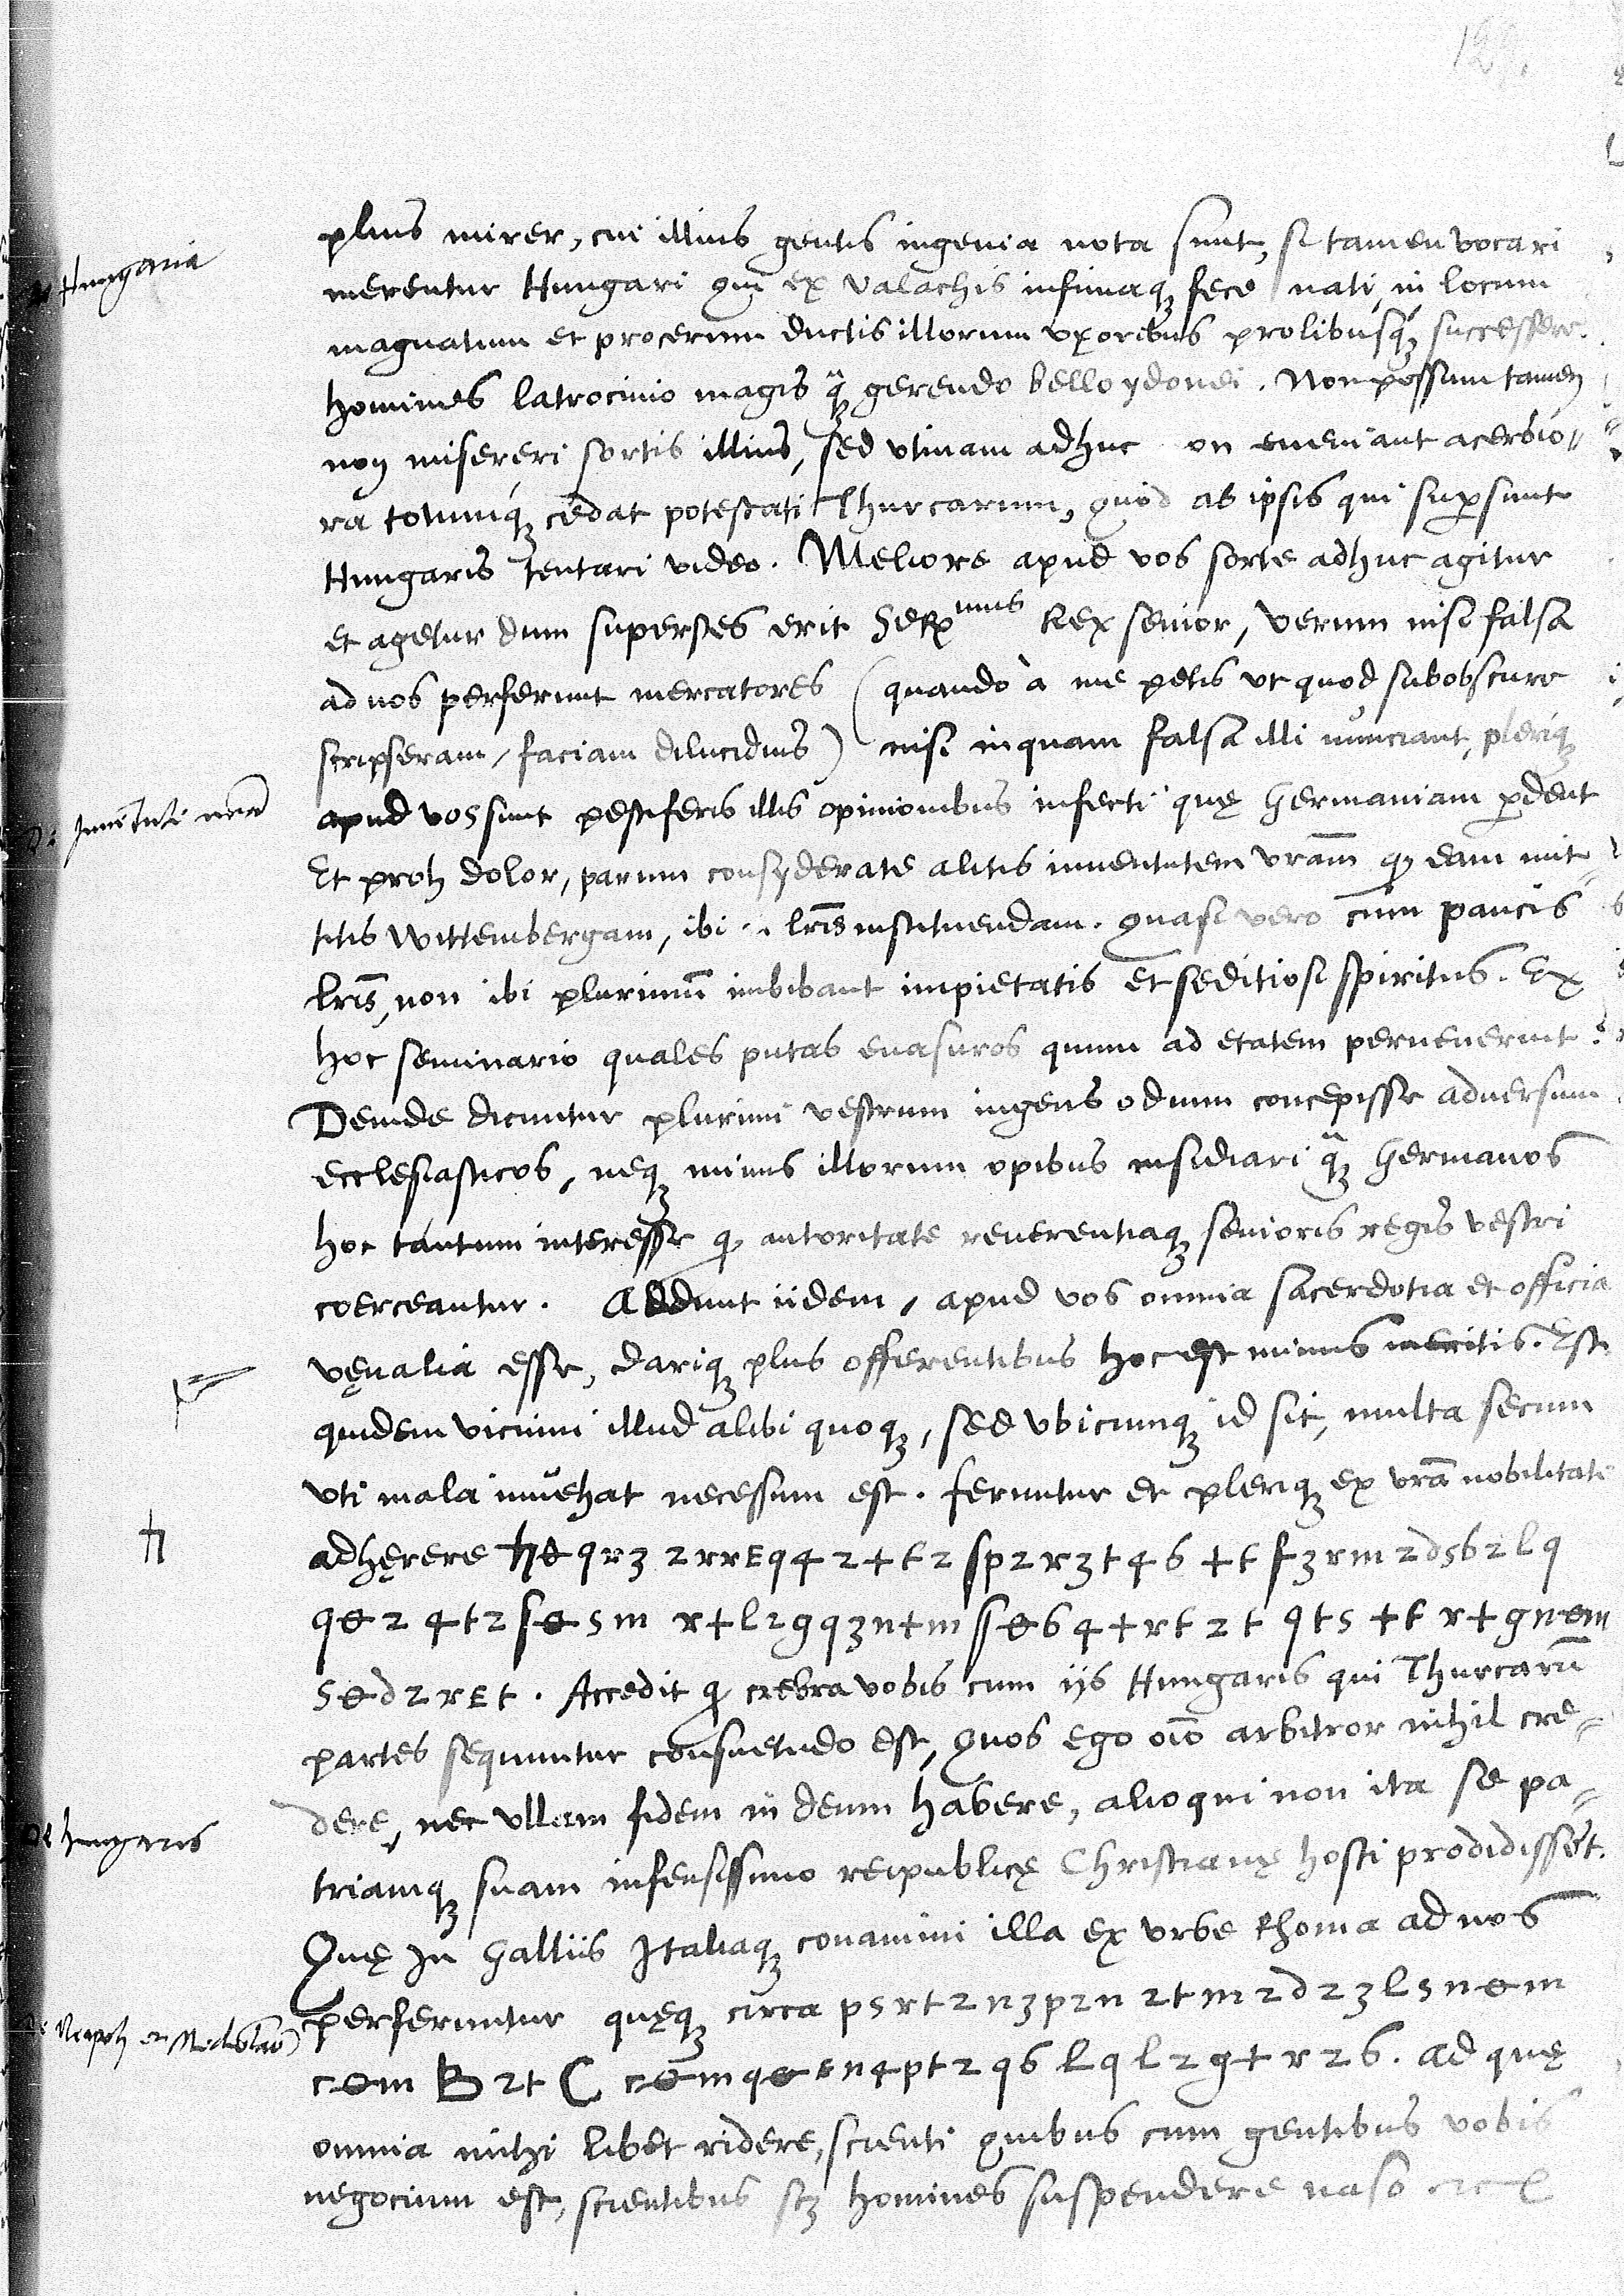 129.
De Hungaria
plus mirer, cui illius gentis ingenia nota sunt, si tamen vocari
merentur Hungari qui ex Valachis infimaqȝ fece nati, in locum
magnatum et procerum ductis illorum vxoribus prolibusqȝ successere.
homines latrocinio magis qȝ gerendo bello ydonei. Non possum tamen
non misereri sortis illius, sed vtinam adhuc on eueniant acerbio-
ra totumqȝ cedat potestati Thurcarum, quod ab ipsis qui supersunt
Hungaris tentari video. Meliore apud vos sorte adhuc agitur
et agetur dum superstes erit Ser mus Rex senior, verum nisi falsa
ad nos perferunt mercatores (quando à me petis vt quod subobscure
scripseram, faciam dilucidius) nisi inquam falsa illi nunciant, pleriqȝ
De Juuentute nra
apud vos sunt pestiferis illis opinionibus infecti quę Germaniam perdent
Et proh dolor, parum consyderate alitis iuuentutem vram qȝ eam mit-
titis Wittembergam, ibi lris instituendam. Quasi vero cum paucis
lris, non ibi plurimum imbibant impietatis et seditiosi spiritus. Ex
hoc seminario quales putas euasuros quum ad etatem peruenerint?
Deinde dicuntur plurimi vestrum ingens odium concepisse aduersum
ecclesiasticos, neqȝ minus illorum opibus insidiari qȝ Germanos
hoc tantum interesse qȝ autoritate reuerentiaqȝ senioris regis vestri
coerceantur. Addunt iidem, apud vos omnia sacerdotia et officia
vęnalia esse, dariqȝ plus offerentibus hoc est minus meritis. Est
quidem vicium illud alibi quoqȝ, sed vbicumqȝ id sit, multa secum
vti mala inuehat necessum est. feruntur et pleriqȝ ex vra nobilitate
adhęrere ħe qrȝ 2rrEq42+t2 sp2rȝt46 +t fȝrm2d5b2lq
qe2 4t2se5m r+l2gqȝn+m sse64+rt2t qt5 +t r+gnem
5ed2rEt. Accedit qȝ crebra vobis cum iis Hungaris qui Thurcarum
partes sequuntur consuetudo est, Quos ego oio arbitror nihil cre-
De hungaris
dere, nec vllam fidem in deum habere, alioqui non ita se pa-
triamqȝ suam infensissimo reipublicę Christianę hosti prodidissent.
Quę in Galliis Italiaqȝ conamini illa ex vrbe Rhoma ad nos
De Neapoli et Mediolano
perferuntur quęqȝ circa p5rt2nȝp2n2tm2d2ȝl5nem
cem B2tC cemqeen4pt2q6 lql2g+r26. Ad quę
omnia mihi libet ridere, scienti quibus cum gentibus vobis
negocium est, scientibus scȝ homines suspendere naso